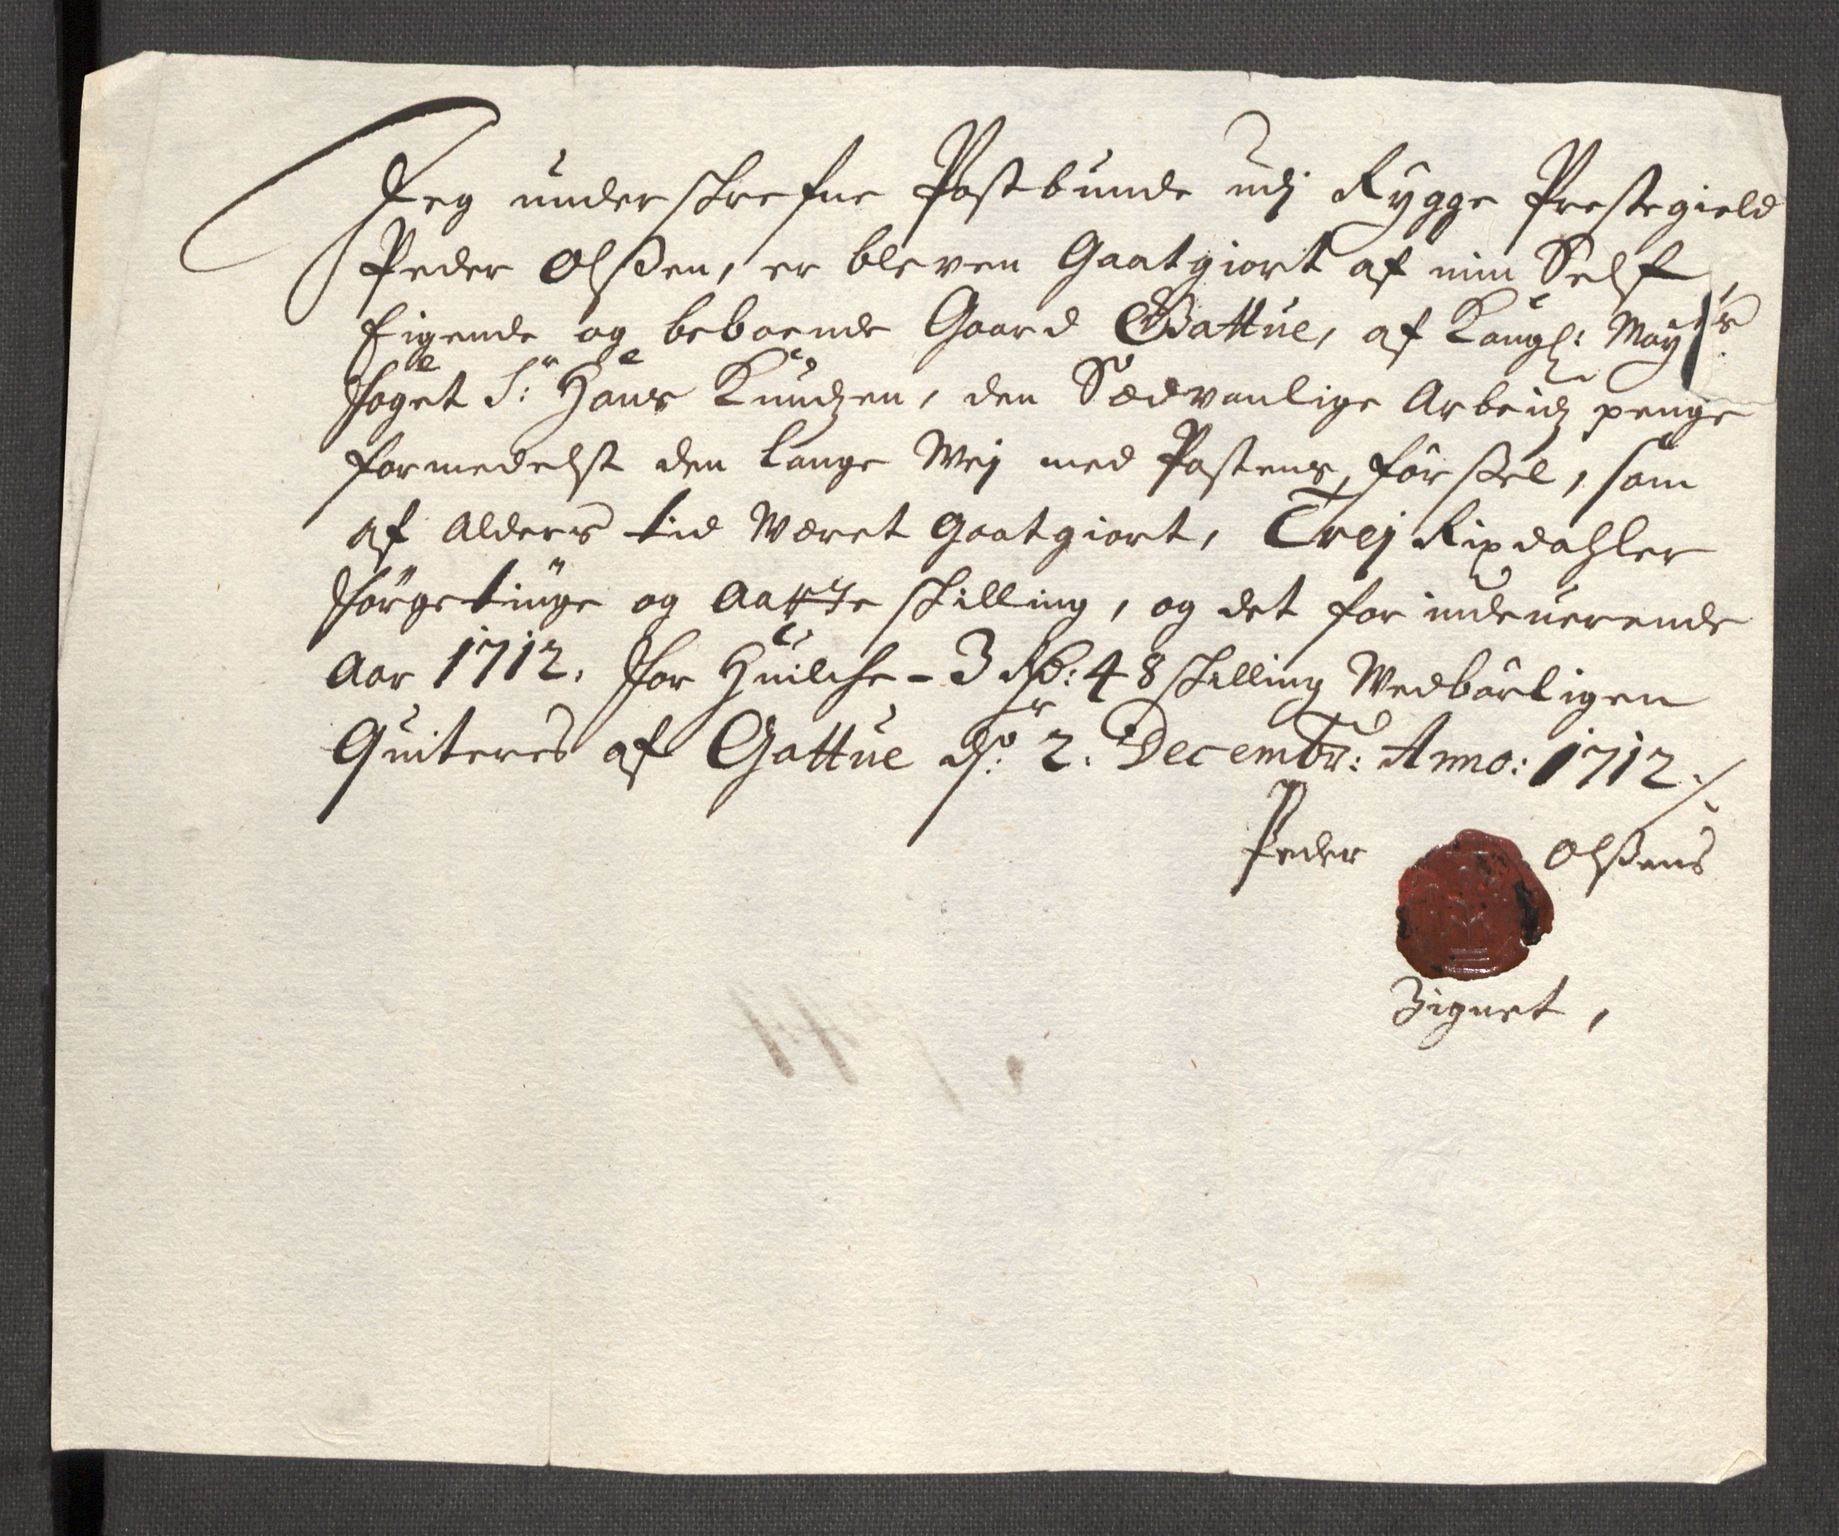 Jeg underskrefne Postbunde udj Rygge Prestegield
Peder Olßen, er bleven Gaatgiort af min Self
Eigende og beboende Gaard Gattue, af Kongl: May:ts
foget Sr: Hans Knudzen, den Sædvanlige Arbeidz penge
formedelst den lange Wej med Postens førßel, som
af Alders tid Været gaatgiort, Trej Rixdahler
førgetiuge og Aatte skilling, og det for indeuerende
Aar 1712. for Huilche - 3 Rd: 48 skilling Wedbørligen
Quiteres af Gattue dr: 2. Decembr: Anno: 1712 ./.
Peder Olßens
Zignet,